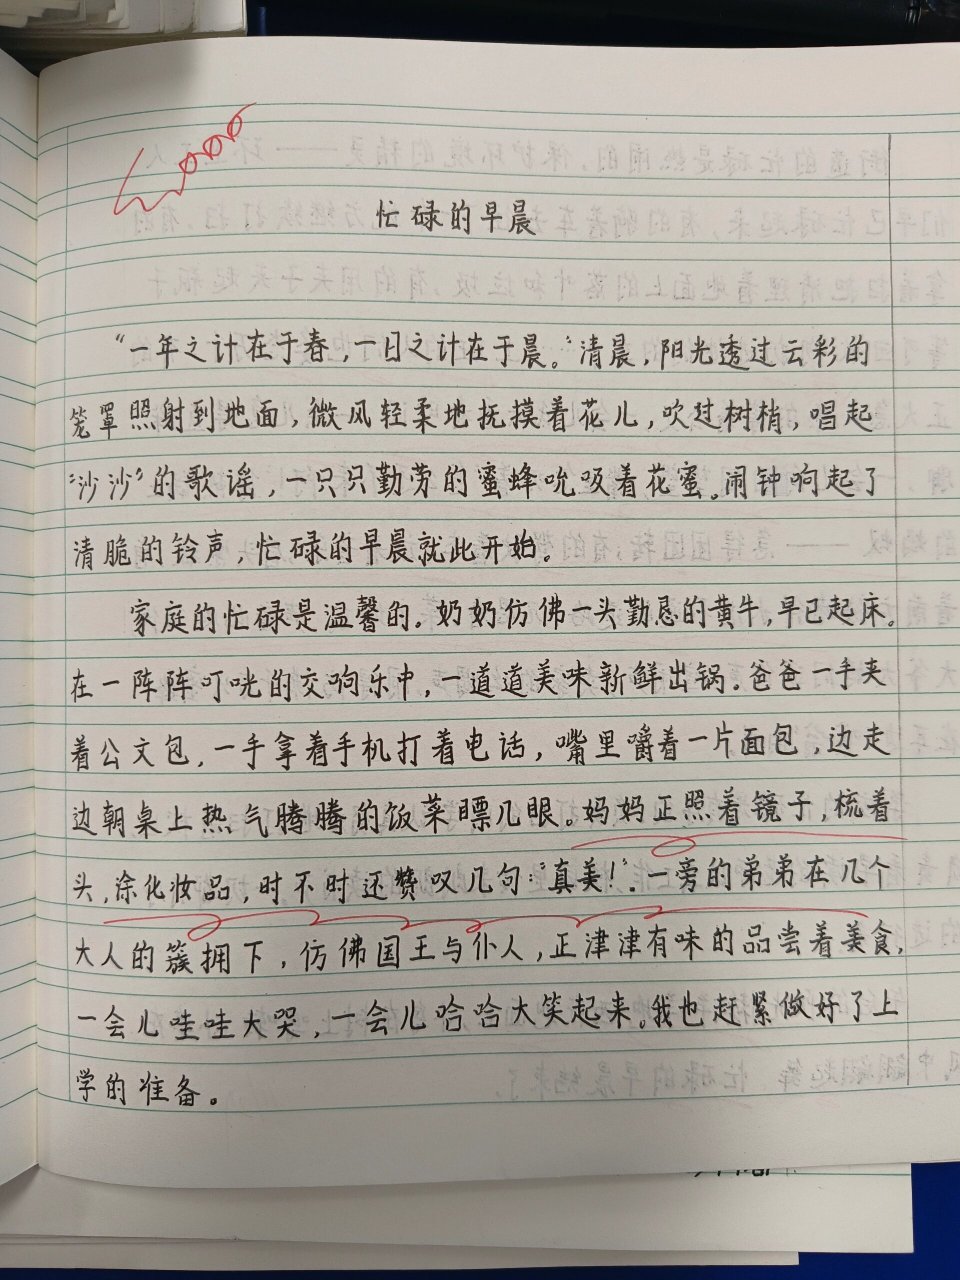 忙碌的早晨
“一年之计在于春,一日之计在于晨。”清晨,阳光透过云彩的
笼罩照射到地面,微风轻柔地抚摸着花儿,吹过树梢,唱起
“沙沙”的歌谣,一只只勤劳的蜜蜂吮吸着花蜜。闹钟响起了
清脆的铃声,忙碌的早晨就此开始。
家庭的忙碌是温馨的。奶奶仿佛一头勤恳的黄牛,早已起床。
在一阵阵叮咣的交响乐中,一道道美味新鲜出锅。爸爸一手夹
着公文包,一手拿着手机打着电话,嘴里嚼着一片面包,边走
边朝桌上热气腾腾的饭菜瞟几眼。妈妈正照着镜子,梳着
头,涂化妆品,时不时还赞叹几句:“真美!”。一旁的弟弟在几个
大人的簇拥下,仿佛国王与仆人,正津津有味的品尝着美食,
一会儿哇哇大哭,一会儿哈哈大笑起来。我也赶紧做好了上
学的准备。